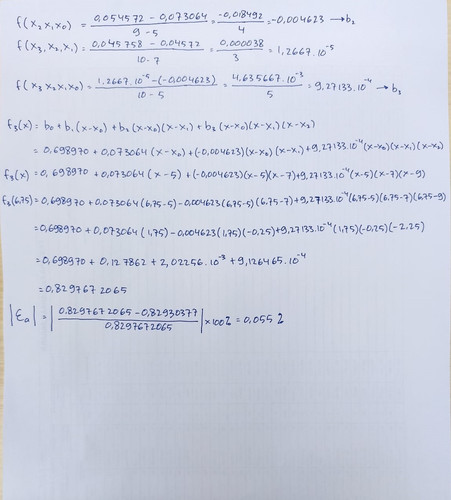 f(x₂x₁x₀) = (0,054572 - 0,073064)/(9-5) = -0,018492/4 = -0,004623 → b₂
f(x₃,x₂,x₁) = (0,045758 - 0,04572)/(10-7) = 0,000038/3 = 1,2667.10⁻⁵
f(x₃x₂x₁x₀) = (1,2667.10⁻⁵ - (-0,004623))/(10-5) = 4,635667.10⁻³/5 = 9,27133.10⁻⁴ → b₃
f₃(x) = b₀ + b₁(x-x₀) + b₂(x-x₀)(x-x₁) + b₃(x-x₀)(x-x₁)(x-x₂)
= 0,698970 + 0,073064(x-x₀) + (-0,004623)(x-x₀)(x-x₁) + 9,27133.10⁻⁴(x-x₀)(x-x₁)(x-x₂)
f₃(x) = 0,698970 + 0,073064(x-5) + (-0,004623)(x-5)(x-7) + 9,27133.10⁻⁴(x-5)(x-7)(x-9)
f₃(6,75) = 0,698970 + 0,073064(6,75-5) - 0,004623(6,75-5)(6,75-7) + 9,27133.10⁻⁴(6,75-5)(6,75-7)(6,75-9)
= 0,698970 + 0,073064(1,75) - 0,004623(1,75)(-0.25) + 9,27133.10⁻⁴(1,75)(-0.25)(-2.25)
= 0,698970 + 0,127862 + 2,02256.10⁻³ + 9,126465.10⁻⁴
= 0,8297672065
|εₐ| = |(0.8297672065 - 0,82930377)/0,8297672065| × 100% = 0,055%